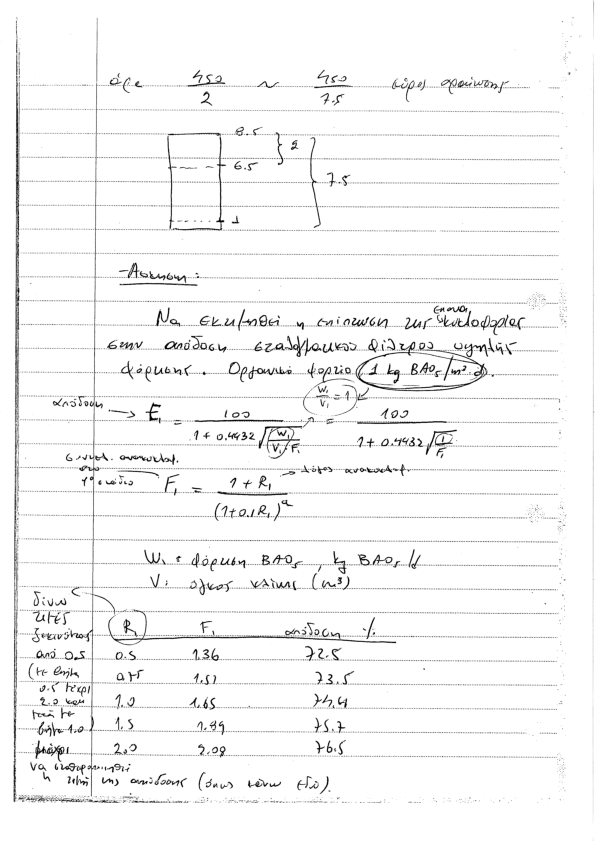 άρα 450/2 ~ 450/7.5 εύρος φόρτισης
8.5
2
6.5
7.5
1
- Άσκηση :
Να εκτιμηθεί η επίπτωση της επανακυκλοφορίας
στην απόδοση σταλαγματικού φίλτρου υψηλής
φόρτισης. Οργανικό φορτίο 1 kg BAO₅/m³.d.
W₁/V₁ = 1
απόδοση → E₁ = 100 / (1 + 0.4432 √((W₁/V₁)/F₁)) = 100 / (1 + 0.4432 √(1/F₁))
συντελ. ανακυκλοφ. στο 1ο στάδιο F₁ = (1 + R₁) / (1+0.1R₁)² → λόγος ανακυκλοφ.
W₁ : φόρτιση BAO₅, kg BAO₅/d
V₁ όγκος κλίνης (m³)
δίνω
τιμές
ξεκινώντας
από 0.5
(με βήμα
0.5 μέχρι
2.0 και
μετά με
βήμα 1.0)
μέχρι
να σταθεροποιηθεί
η τιμή της απόδοσης (όπως κάνω εδώ).
R₁ F₁ απόδοση %
0.5 1.36 72.5
0.75 1.51 73.5
1.0 1.65 74.4
1.5 1.89 75.7
2.0 2.08 76.5